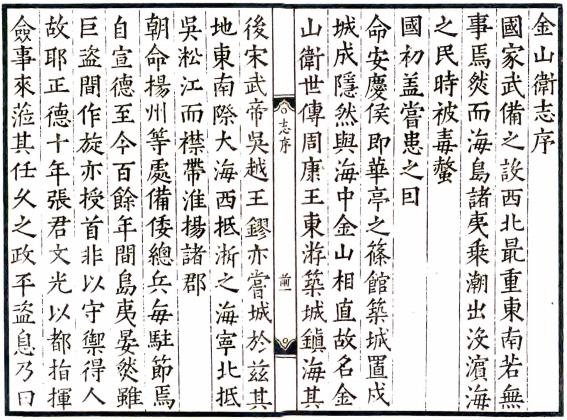 金山衛志序
國家武備之設西北最重東南若無
事焉然而海島諸夷乗潮出沒濵海
之民時被毒螫
國初盖嘗患之曰
命安慶侯即華亭之篠館築城置戍
城成隱然與海中金山相直故名金
山衛世傳周康王東游築城鎮海其
志序
前一
後宋武帝吳越王鏐亦嘗城於兹其
地東南際大海西抵浙之海寧北抵
吳松江而襟帶淮揚諸郡
朝命揚州等處備倭總兵每駐節焉
自宣德至今百餘年間島夷晏然雖
巨盗間作旋亦授首非以守禦得人
故耶正德十年張君文光以都指揮
僉事來蒞其任久之政平盗息乃曰